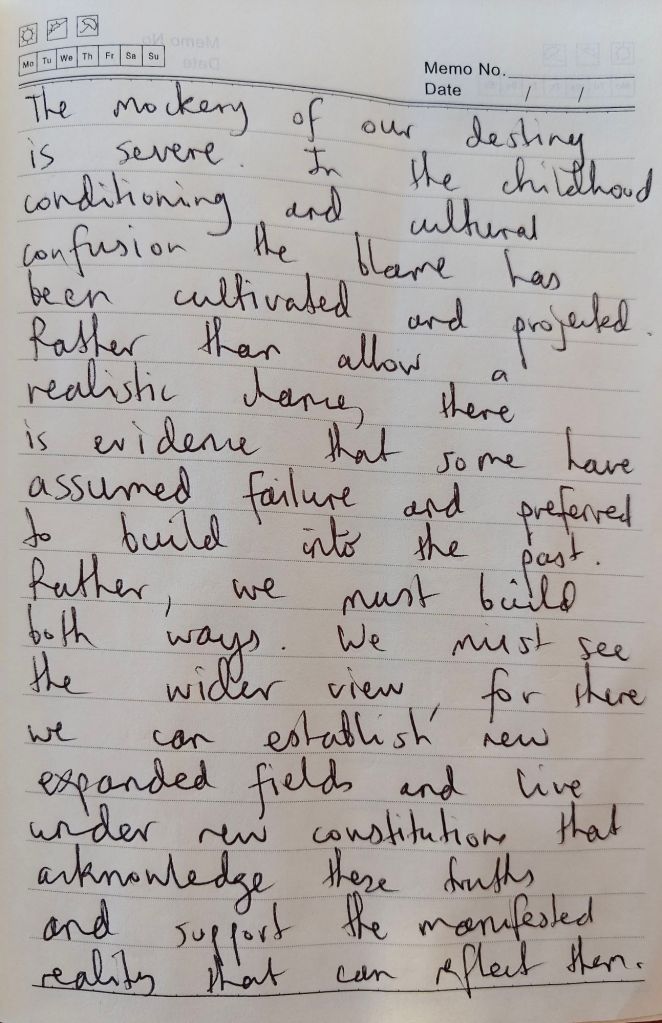 Mo Tu We Th Fr Sa Su
Memo No.
Date / /
The mockery of our destiny
is severe. In the childhood
conditioning and cultural
confusion the blame has
been cultivated and projected.
Rather than allow a
realistic chance, there
is evidence that some have
assumed failure and preferred
to build into the past.
Rather, we must build
both ways. We must see
the wider view, for there
we can establish new
expanded fields and live
under new constitutions that
acknowledge these truths
and support the manifested
reality that can reflect them.